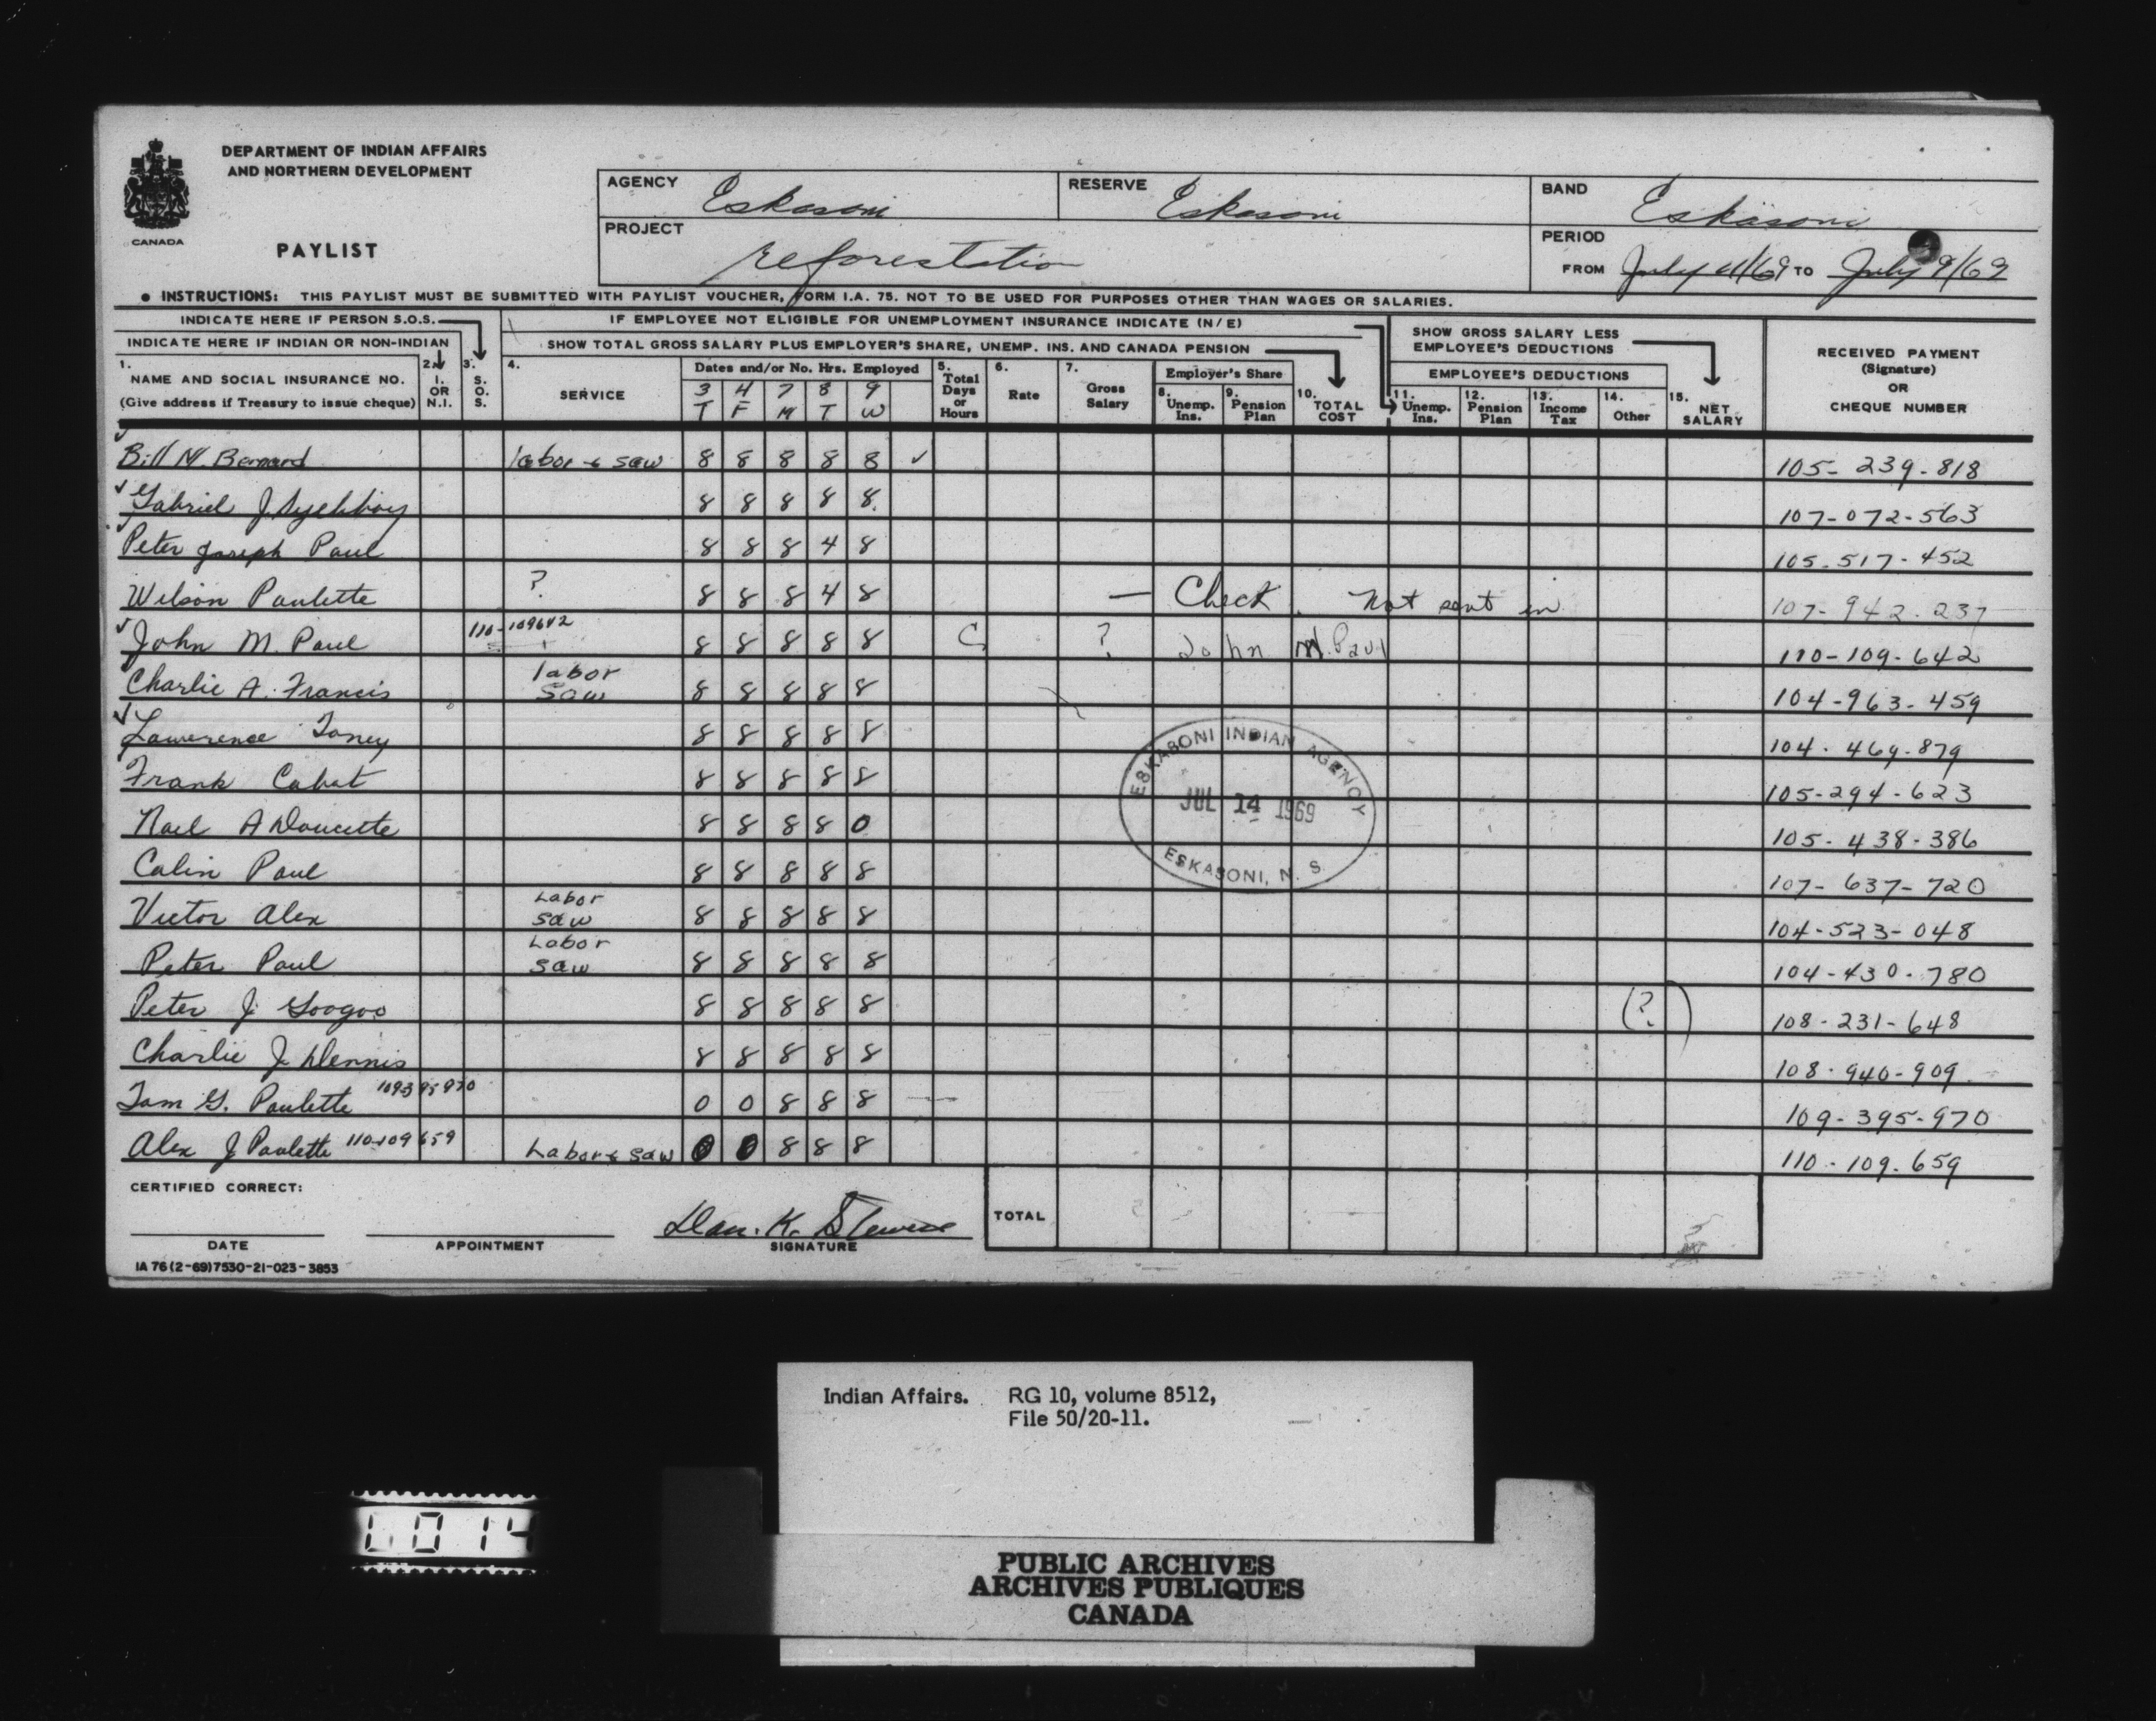 DEPARTMENT OF INDIAN AFFAIRS
AND NORTHERN DEVELOPMENT
CANADA
PAYLIST
AGENCY Eskasoni RESERVE Eskasoni BAND Eskasoni
PROJECT reforestation PERIOD
FROM July /69 TO July 9/69
• INSTRUCTIONS: THIS PAYLIST MUST BE SUBMITTED WITH PAYLIST VOUCHER, FORM I.A. 75. NOT TO BE USED FOR PURPOSES OTHER THAN WAGES OR SALARIES.
INDICATE HERE IF PERSON S.O.S.
INDICATE HERE IF INDIAN OR NON-INDIAN
IF EMPLOYEE NOT ELIGIBLE FOR UNEMPLOYMENT INSURANCE INDICATE (N/E)
SHOW TOTAL GROSS SALARY PLUS EMPLOYER'S SHARE, UNEMP. INS. AND CANADA PENSION
SHOW GROSS SALARY LESS
EMPLOYEE'S DEDUCTIONS
1. NAME AND SOCIAL INSURANCE NO.
(Give address if Treasury to issue cheque)
2. I. OR N.I.
3. S. O. S.
4. SERVICE
Dates and/or No. Hrs. Employed
3 4 7 8 9
T F M T W
5. Total Days or Hours
6. Rate
7. Gross Salary
Employer's Share
8. Unemp. Ins.
9. Pension Plan
10. TOTAL COST
EMPLOYEE'S DEDUCTIONS
11. Unemp. Ins.
12. Pension Plan
13. Income Tax
14. Other
15. NET SALARY
RECEIVED PAYMENT
(Signature)
OR
CHEQUE NUMBER
Bill N. Bernard labor & saw 8 8 8 8 8 ✓ 105-239-818
✓ Gabriel J. 8 8 8 8 8 107-072-563
✓ Peter Joseph Paul 8 8 8 4 8 105-517-452
Wilson Paulette ? 8 8 8 4 8 — Check. Not sent in 107-942-237
✓ John M. Paul 110-109642 8 8 8 8 8 C ? John M. Paul 110-109-642
Charlie A. Francis labor saw 8 8 8 8 8 104-963-459
✓ Lawerence Toney 8 8 8 8 8 104-469-879
Frank Cabot 8 8 8 8 8 105-294-623
Noel A Doucette 8 8 8 8 0 105-438-386
Colin Paul 8 8 8 8 8 107-637-720
Victor Alex Labor saw 8 8 8 8 8 104-523-048
Peter Paul Labor saw 8 8 8 8 8 104-430-780
Peter J. Googoo 8 8 8 8 8 (?) 108-231-648
Charlie J. Dennis 8 8 8 8 8 108-940-909
Tom G. Paulette 109395970 0 0 8 8 8 — 109-395-970
Alex J Paulette 110109659 Labor & saw 0 0 8 8 8 110-109-659
ESKASONI INDIAN AGENCY
JUL 14 1969
ESKASONI, N. S.
CERTIFIED CORRECT:
Dan. K. Stevens
TOTAL
DATE APPOINTMENT SIGNATURE
IA 76 (2-69) 7530-21-023-3853
Indian Affairs. RG 10, volume 8512,
File 50/20-11.
0014
PUBLIC ARCHIVES
ARCHIVES PUBLIQUES
CANADA